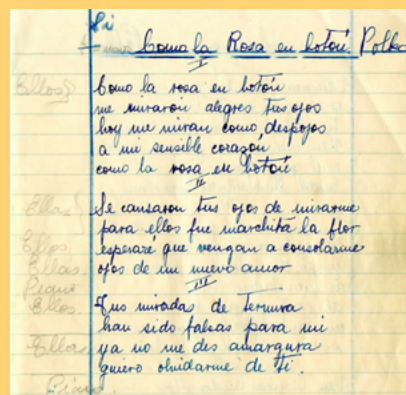 Si
Como la Rosa en botón Polka
I
Ellos
Como la rosa en botón
me miraron alegres tus ojos
hoy me miran como despojos
a mi sensible corazón
como la rosa en botón
II
Ellas
Se cansaron tus ojos de mirarme
para ellos fue marchitá la flor
Ellos
esperare que vengan a consolarme
Ellas
ojos de un nuevo amor
Piano
III
Ellos.
Tus miradas de ternura
han sido falsas para mi
Ellas
ya no me des amargura
quiero olvidarme de ti.
Piano